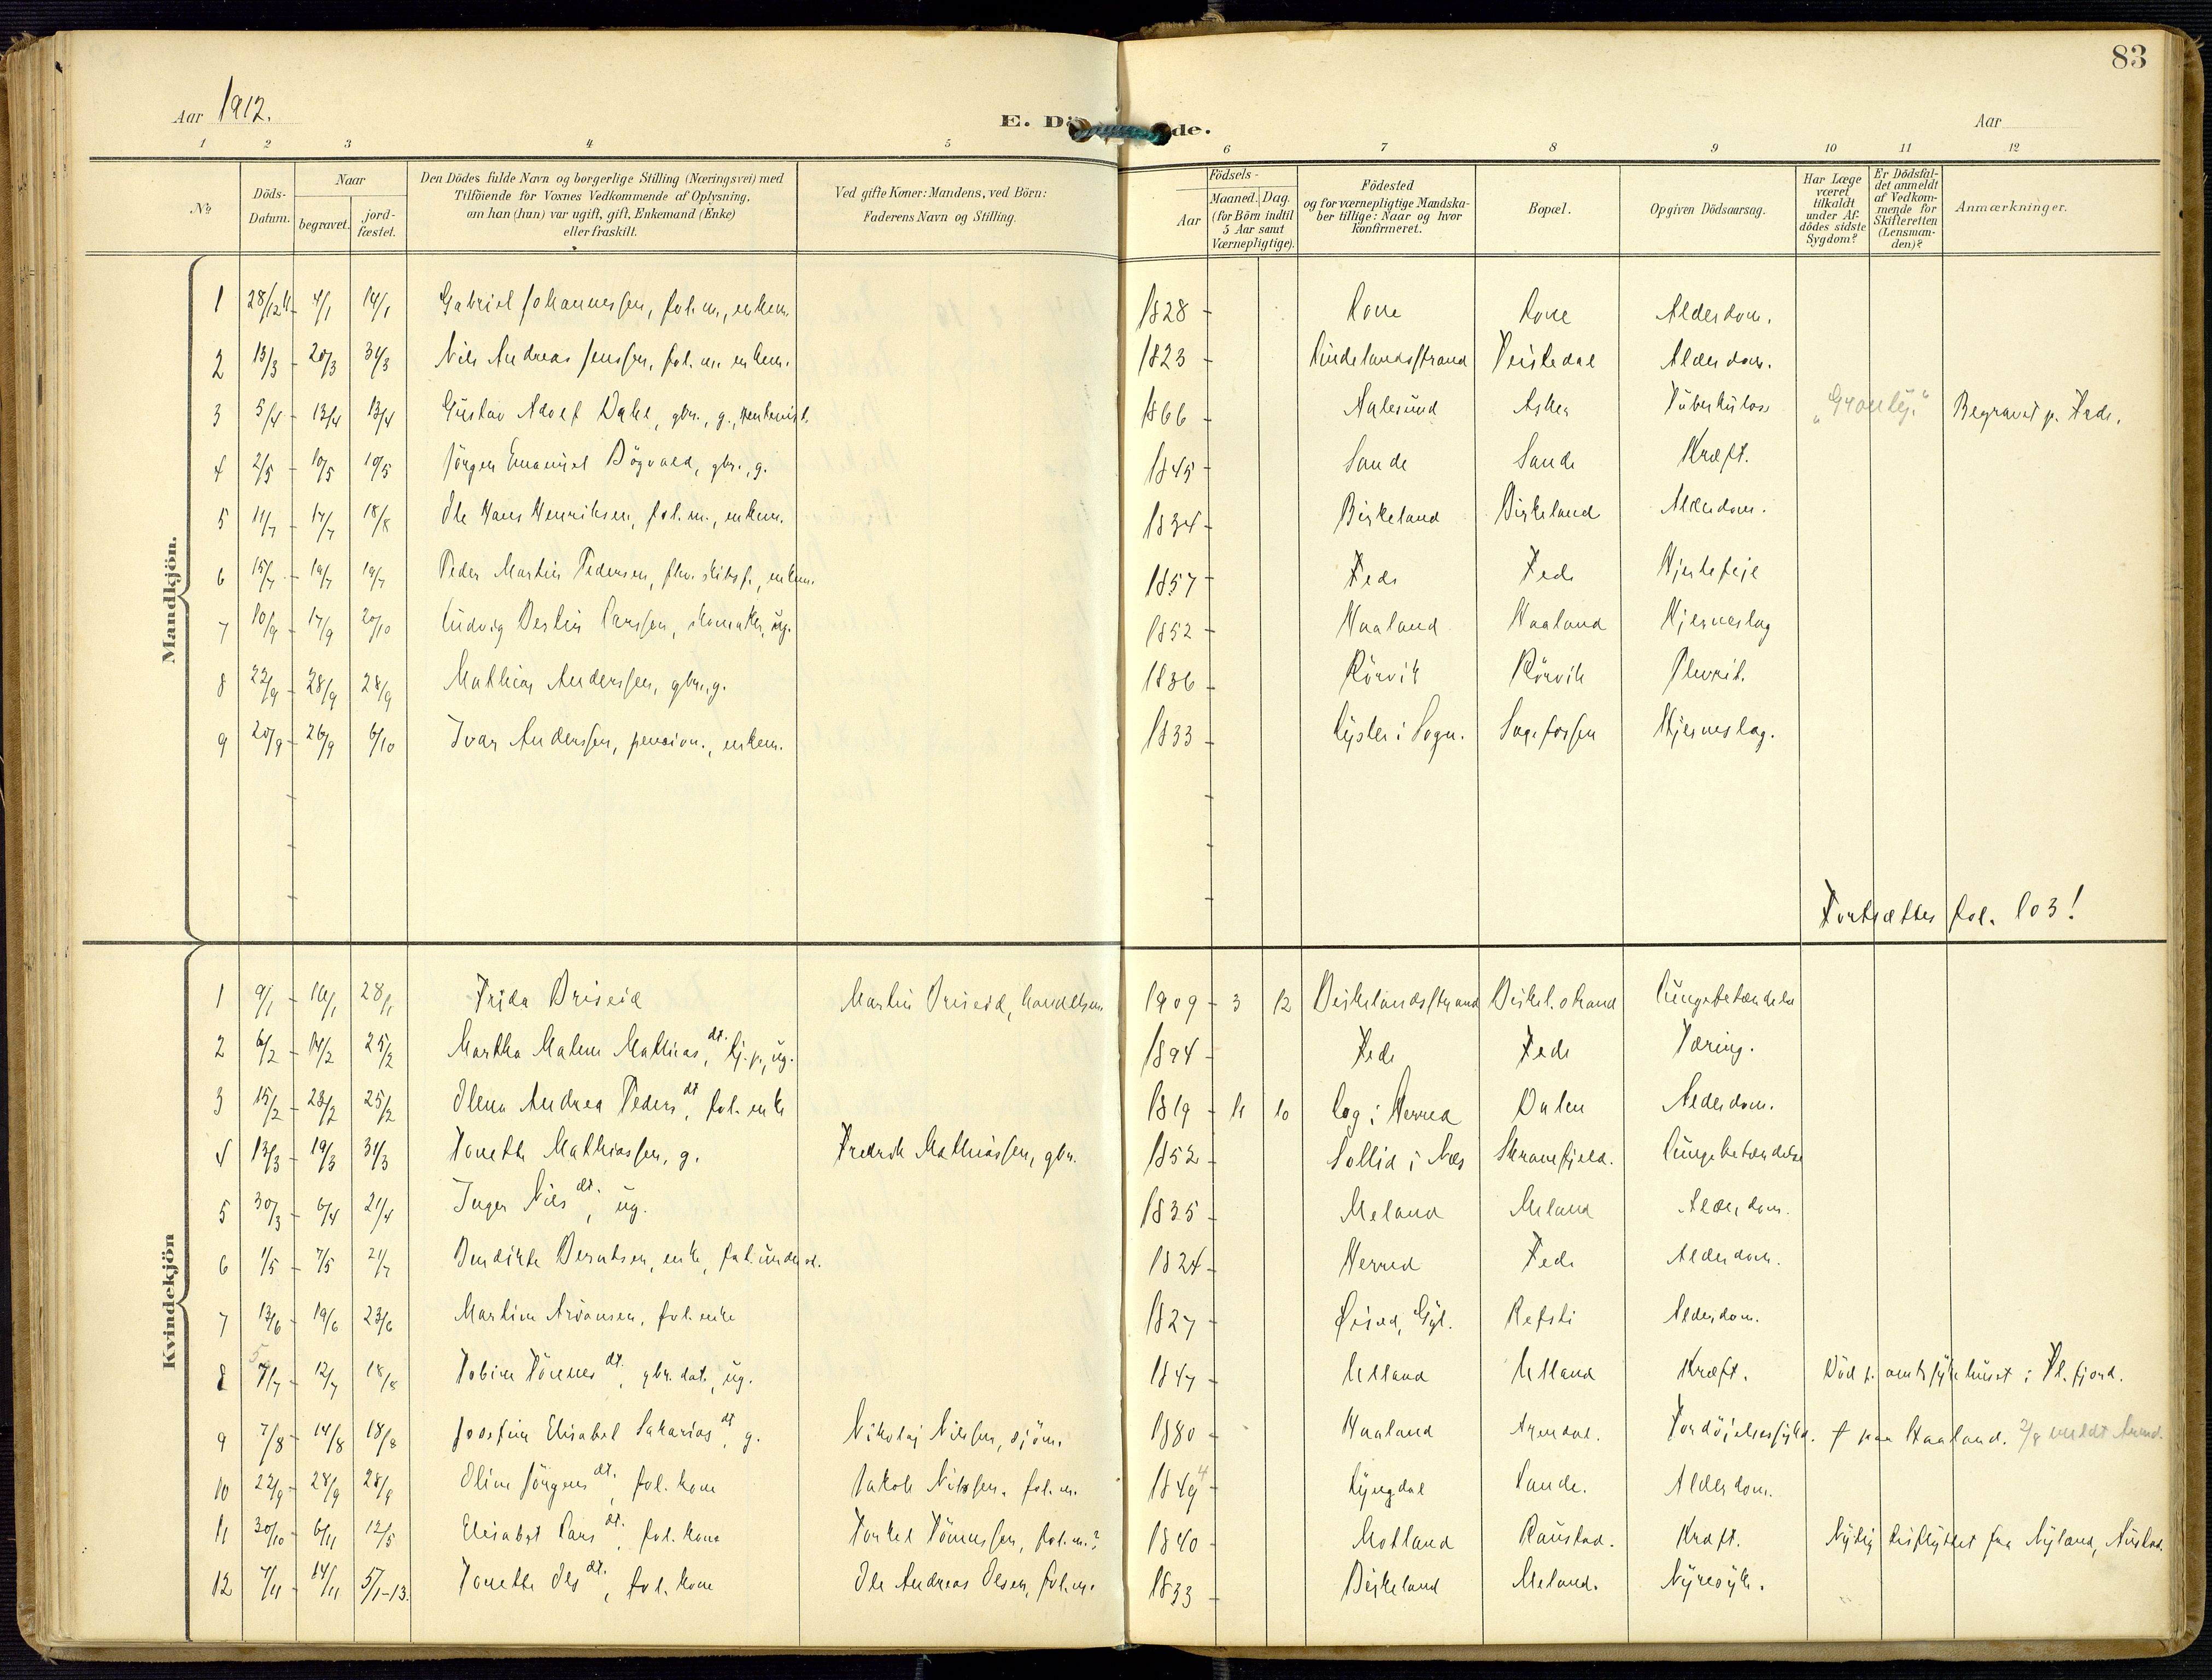 83
Aar 1912.
E. Dö de.
Aar
1 2 3 4 5 6 7 8 9 10 11 12
No
Döds-Datum.
Naar
begravet.
jord-fæstet.
Den Dödes fulde Navn og borgerlige Stilling (Næringsvei) med
Tilföiende for Voxnes Vedkommende af Oplysning,
om han (hun) var ugift, gift, Enkemand (Enke)
eller fraskilt.
Ved gifte Koner: Mandens, ved Börn:
Faderens Navn og Stilling.
Födsels-
Aar
Maaned. Dag.
(for Börn indtil
5 Aar samt
Værnepligtige).
Födested
og for værnepligtige Mandska-
ber tillige: Naar og hvor
konfirmeret.
Bopæl.
Opgiven Dödsaarsag.
Har Læge
været
tilkaldt
under Af-
dödes sidste
Sygdom?
Er Dödsfal-
det anmeldt
af Vedkom-
mende for
Skifteretten
(Lensman-
den)?
Anmærkninger.
Mandkjön.
1 28/12 4/1 14/1 Gabriel Johannessen, fol.m., enkem. 1828 Alderdom.
2 13/3 20/3 31/3 Nils Andreas Jenssen, fol.m. enkem. 1823 Alderdom.
3 5/4 13/4 13/4 Gustav Adolf Dahl, gbr., g. 1866 Aalesund Asker Tuberkulose Begravet p. Fede.
4 2/5 10/5 10/5 Jörgen Emanuel Bögvald, gbr., g. 1845 Sande Sande Kræft.
5 11/7 17/7 18/8 Ole Hans Henriksen, fol.m., enkem. 1834 Birkeland Birkeland Alderdom.
6 15/7 19/7 19/7 Peder Martin Pedersen, fhv. skibsf., enkem. 1857 Fede Fede Hjertefeil
7 10/9 17/9 20/10 Ludvig Bertin Larssen, skomaker, ug. 1852 Haaland Haaland Hjerneslag
8 22/9 28/9 28/9 Mathias Anderssen, gbr., g. 1836 Rörvik Rörvik Plevrit.
9 20/9 26/9 6/10 Ivar Anderssen, pension., enkem. 1833 Lyster i Sogn. Sagefossen Hjerneslag.
Fortsættes fol. 103!
Kvindekjön
1 9/1 16/1 28/1 Frida Briseid Martin Briseid, handelsm. 1909 3 12 Birkelandsstrand Birkel.strand Lungebetændelse
2 6/2 14/2 25/2 Martha Malene Mathias dt., tj.p., ug. 1894 Fede Fede Tæring.
3 15/2 23/2 25/2 Olena Andrea Peders dt., fol. enke 1819 11 10 Log i Herred Dalen Alderdom.
4 13/3 19/3 31/3 Tonette Mathiassen, g. Fredrik Mathiassen, gbr. 1852 Sollid i Næs Skranefjeld. Lungebetændelse
5 30/3 6/4 21/4 Inger Nils dt., ug. 1835 Meland Meland Alderdom.
6 1/5 7/5 21/7 Bendikte Berntsen, enke, fat.underst. 1824 Herred Fede Alderdom.
7 13/6 19/6 23/6 Martine Aroansen, fol. enke 1827 Refsti Alderdom.
8 7/7 12/7 18/8 Tobine Tönnes dt., gbr. dat., ug. 1847 Utland Utland Kræft. Död p. amtssykehuset i Fl.fjord.
9 7/8 14/8 18/8 Josefine Elisabet Sakarias dt., g. Nikolaj Nilssen, sjöm. 1880 Haaland Arendal. Fordöielsessykd. † paa Haaland.
10 22/9 28/9 28/9 Oline Jörgens dt., fol. kone Jakob Nilssen, fol.m. 1849 Lyngdal Sande. Alderdom.
11 30/10 6/11 12/5 Elisabet Lars dt., fol. kone Torkel Tönnessen, fol.m.? 1840 Motland Raustad. Kræft. Nylig tilflyttet fra Nyland, Austad.
12 7/11 14/11 5/1-13. Tonette Ols dt., fol. kone Ole Andreas Olsen, fol.m. 1833 Birkeland Meland. Nyresyk.